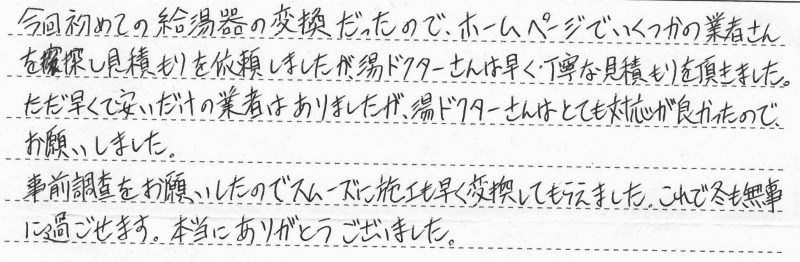 今回初めての給湯器の変換だったので、ホームページでいくつかの業者さん
を探し見積もりを依頼しましたが湯ドクターさんは早く・丁寧な見積もりを頂きました。
ただ早くて安いだけの業者はありましたが、湯ドクターさんはとても対応が良かったので、
お願いしました。
事前調査をお願いしたのでスムーズに施工も早く変換してもらえました。これで冬も無事
に過ごせます。本当にありがとうございました。